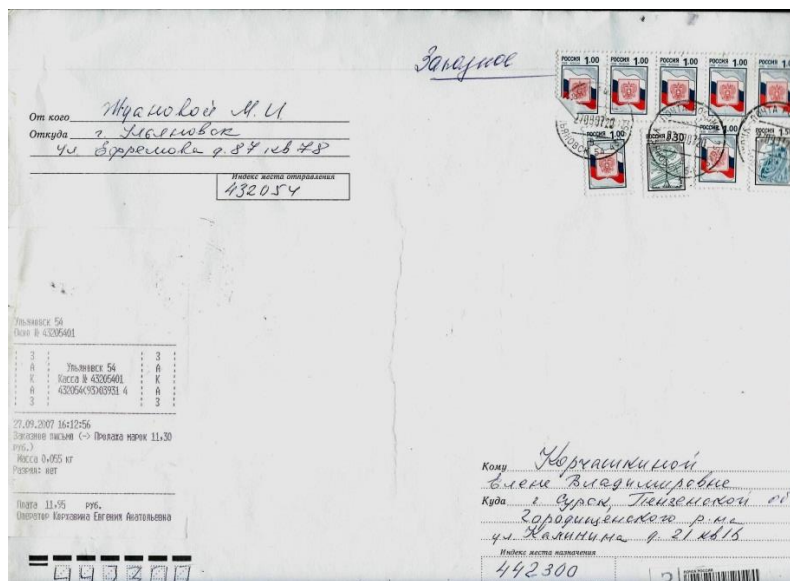 Заказное
РОССИЯ 1.00
РОССИЯ 1.00
РОССИЯ 1.00
РОССИЯ 1.00
РОССИЯ 1.00
РОССИЯ 1.00
0.30
РОССИЯ 1.00
РОССИЯ 1.5
От кого Ждановой М. И
Откуда г. Ульяновск
ул Ефремова д. 87 кв 78
Индекс места отправления
432054
Ульяновск 54
Пояс № 43205401
ЗАКАЗ
Ульяновск 54
Касса № 43205401
432054(93)03931 4
ЗАКАЗ
27.09.2007 16:12:56
Заказное письмо (-> Продажа марок 11.30
руб.)
Масса 0,055 кг
Разряд: нет
Плата 11.55 руб.
Оператор Корхавина Евгения Анатольевна
Кому Корчашкиной
Елене Владимировне
Куда г. Сурск, Пензенской об
Городищенского р-на
ул. Калинина д. 21 кв 16
Индекс места назначения
442300